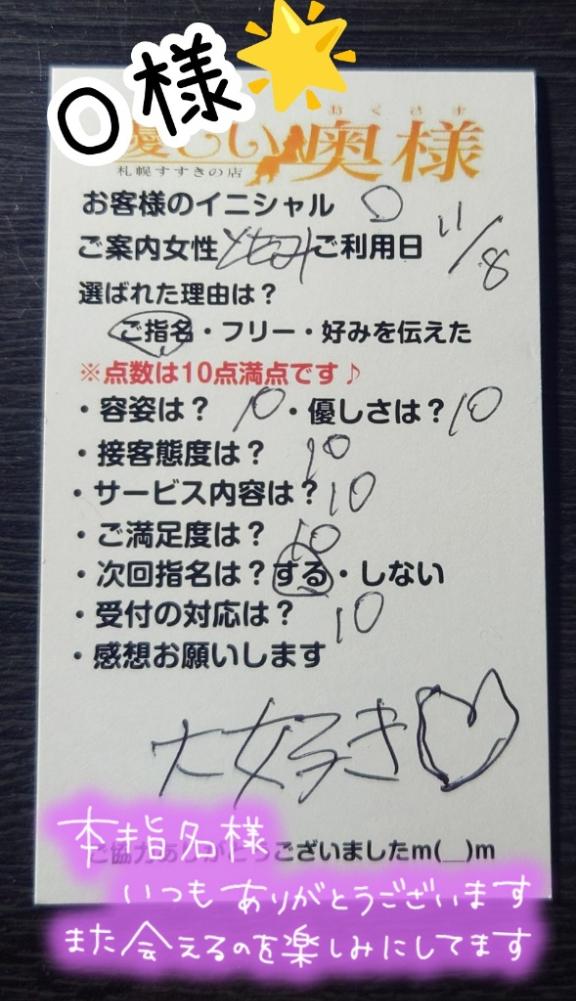 O様
優しい奥様
おくさま
札幌すすきの店
お客様のイニシャル O
ご案内女性 ともみ ご利用日 11/8
選ばれた理由は？
ご指名・フリー・好みを伝えた
※点数は10点満点です♪
・容姿は？ 10 ・優しさは？ 10
・接客態度は？ 10
・サービス内容は？ 10
・ご満足度は？ 10
・次回指名は？する・しない
・受付の対応は？ 10
・感想お願いします
大好き♡
本指名様
ご協力ありがとうございましたm(__)m
いつもありがとうございます
また会えるのを楽しみにしてます